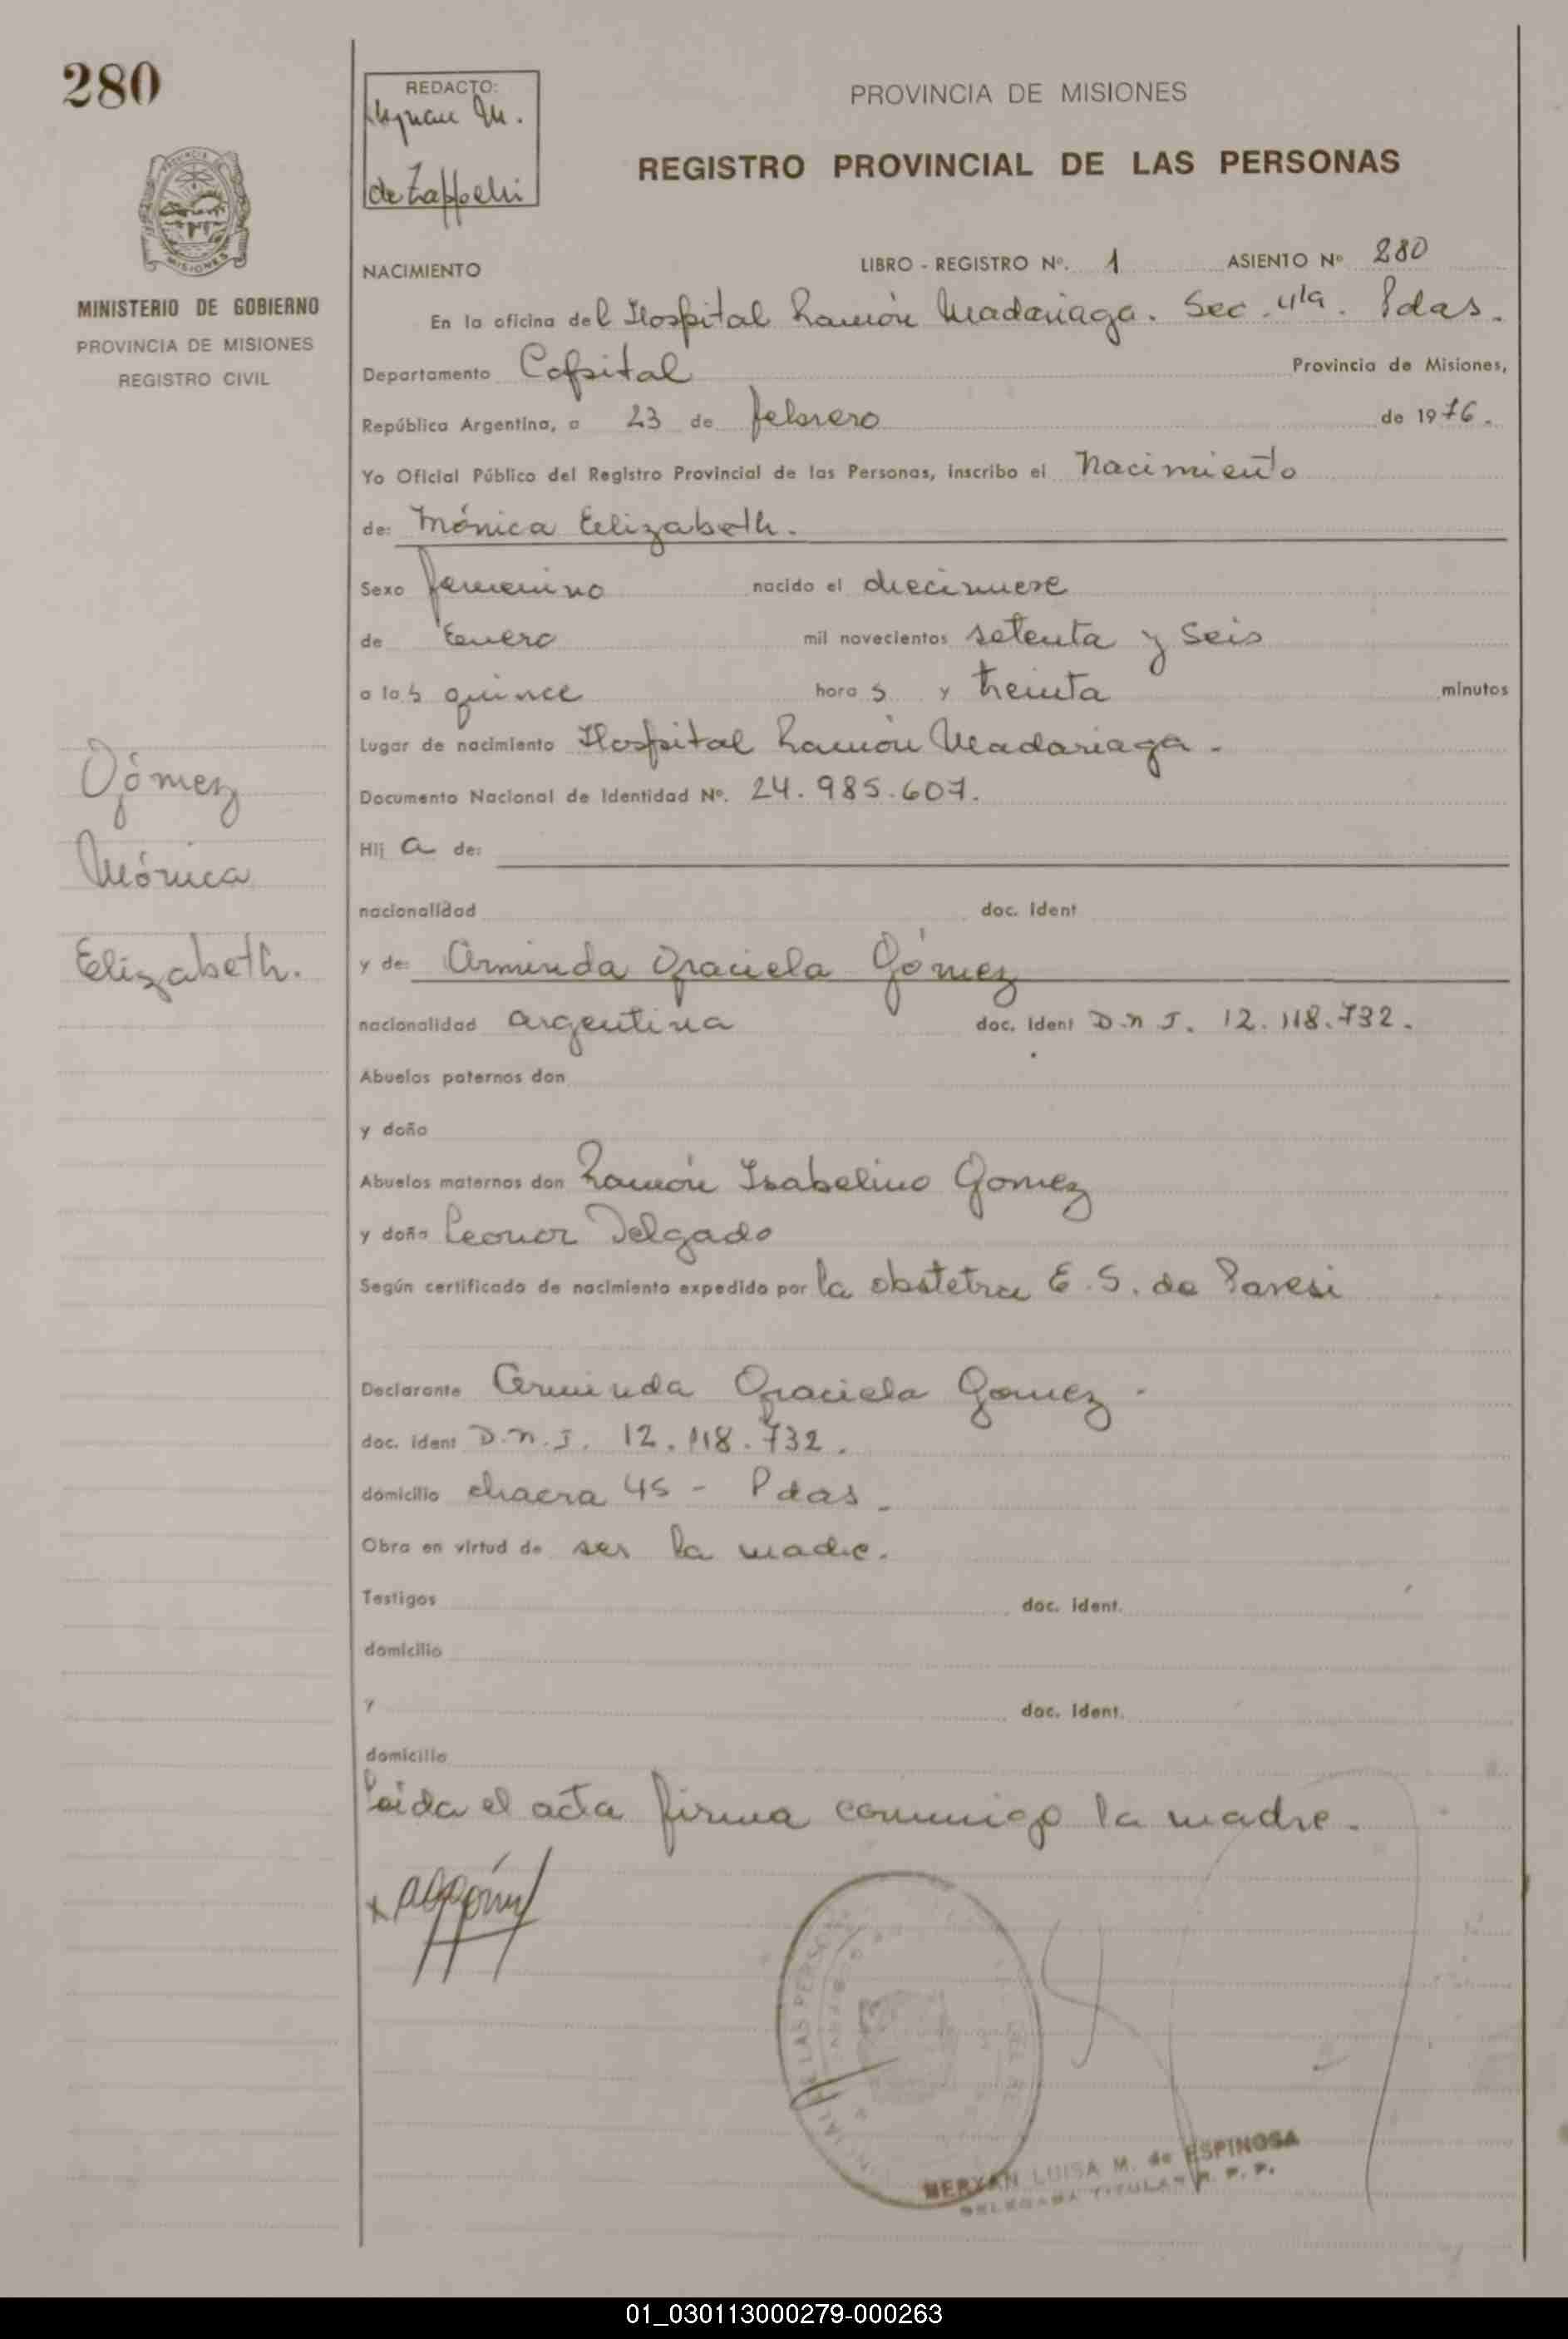 280
REDACTO:
M.
de Zappelli
PROVINCIA DE MISIONES
REGISTRO PROVINCIAL DE LAS PERSONAS
MISIONES
MINISTERIO DE GOBIERNO
PROVINCIA DE MISIONES
REGISTRO CIVIL
NACIMIENTO LIBRO - REGISTRO Nº. 1 ASIENTO Nº 280
En la oficina del Hospital Ramón Madariaga. Sec. 4ta. Pdas.
Departamento Capital Provincia de Misiones,
República Argentina, a 23 de febrero de 1976.
Yo Oficial Público del Registro Provincial de las Personas, inscribo el Nacimiento
de: Mónica Elizabeth.
Sexo femenino nacido el diecinueve
de Enero mil novecientos setenta y seis
a las quince horas y treinta minutos
Lugar de nacimiento Hospital Ramón Madariaga.
Documento Nacional de Identidad Nº. 24.985.607.
Gómez
Mónica
Elizabeth.
Hija de:
nacionalidad doc. Ident
y de: Arminda Graciela Gómez
nacionalidad argentina doc. Ident D.N.I. 12.118.732.
Abuelos paternos don
y doña
Abuelos maternos don Ramón Isabelino Gomez
y doña Leonor Delgado
Según certificado de nacimiento expedido por la obstetra E.S. de Paresi
Declarante Arminda Graciela Gomez.
doc. ident D.N.I. 12.118.732.
domicilio chacra 45 - Pdas.
Obra en virtud de ser la madre.
Testigos doc. ident.
domicilio
y doc. Ident.
domicilio
Leída el acta firma conmigo la madre.
MERYAN LUISA M. de ESPINOSA
DELEGADA TITULAR R. P. P.
01_030113000279-000263